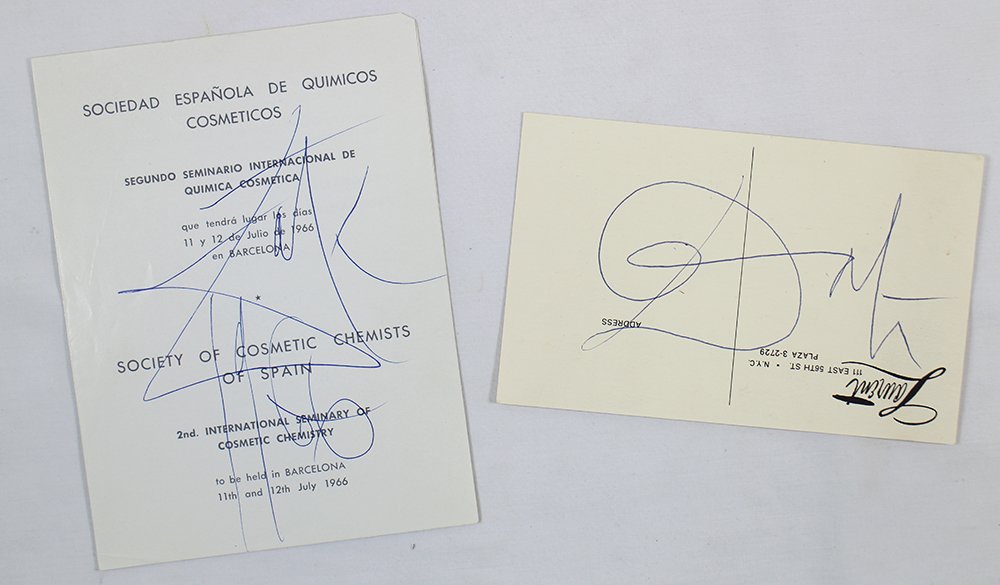 SOCIEDAD ESPAÑOLA DE QUIMICOS
COSMETICOS
SEGUNDO SEMINARIO INTERNACIONAL DE
QUIMICA COSMETICA
que tendrá lugar los días
11 y 12 de Julio de 1966
en BARCELONA
*
SOCIETY OF COSMETIC CHEMISTS
OF SPAIN
2nd. INTERNATIONAL SEMINARY OF
COSMETIC CHEMISTRY
to be held in BARCELONA
11th and 12th July 1966
Laurent
111 EAST 56TH ST. • N.Y.C.
PLAZA 3-2729
ADDRESS